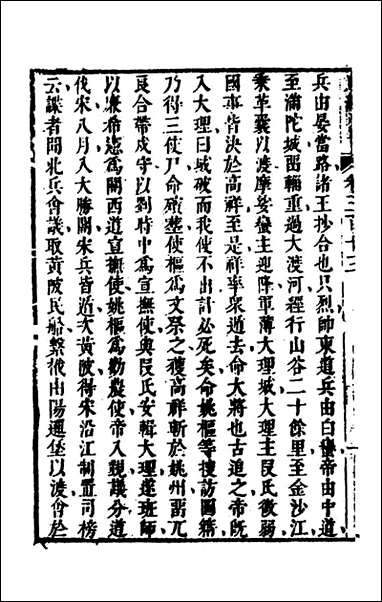 兵由晏當路諸王抄合也只烈帥東道兵由白蠻帝由中道
至滿陀城留輜重過大渡河經行山谷二十餘里至金沙江
乘革囊以渡摩娑蠻主迎降軍薄大理城大理主叚氏微弱
國事皆決於高祥至是祥率衆遁去命大將也古追之帝旣
入大理曰城破而我使不出計必死矣命姚樞等搜訪圖籍
乃得三使尸命殯葬使樞爲文祭之獲高祥斬於姚州留兀
良合帶戍守以劉時中爲宣撫使與叚氏安輯大理遂班師
以廉希憲爲關西道宣撫使姚樞爲勸農使帝入觀議分道
伐宋八月入大勝關宋兵皆遁次黄陂得宋沿江制置司榜
云諜者聞北兵會議取黄陂民船繫栰由陽邏堡以渡會於
卷三百十三